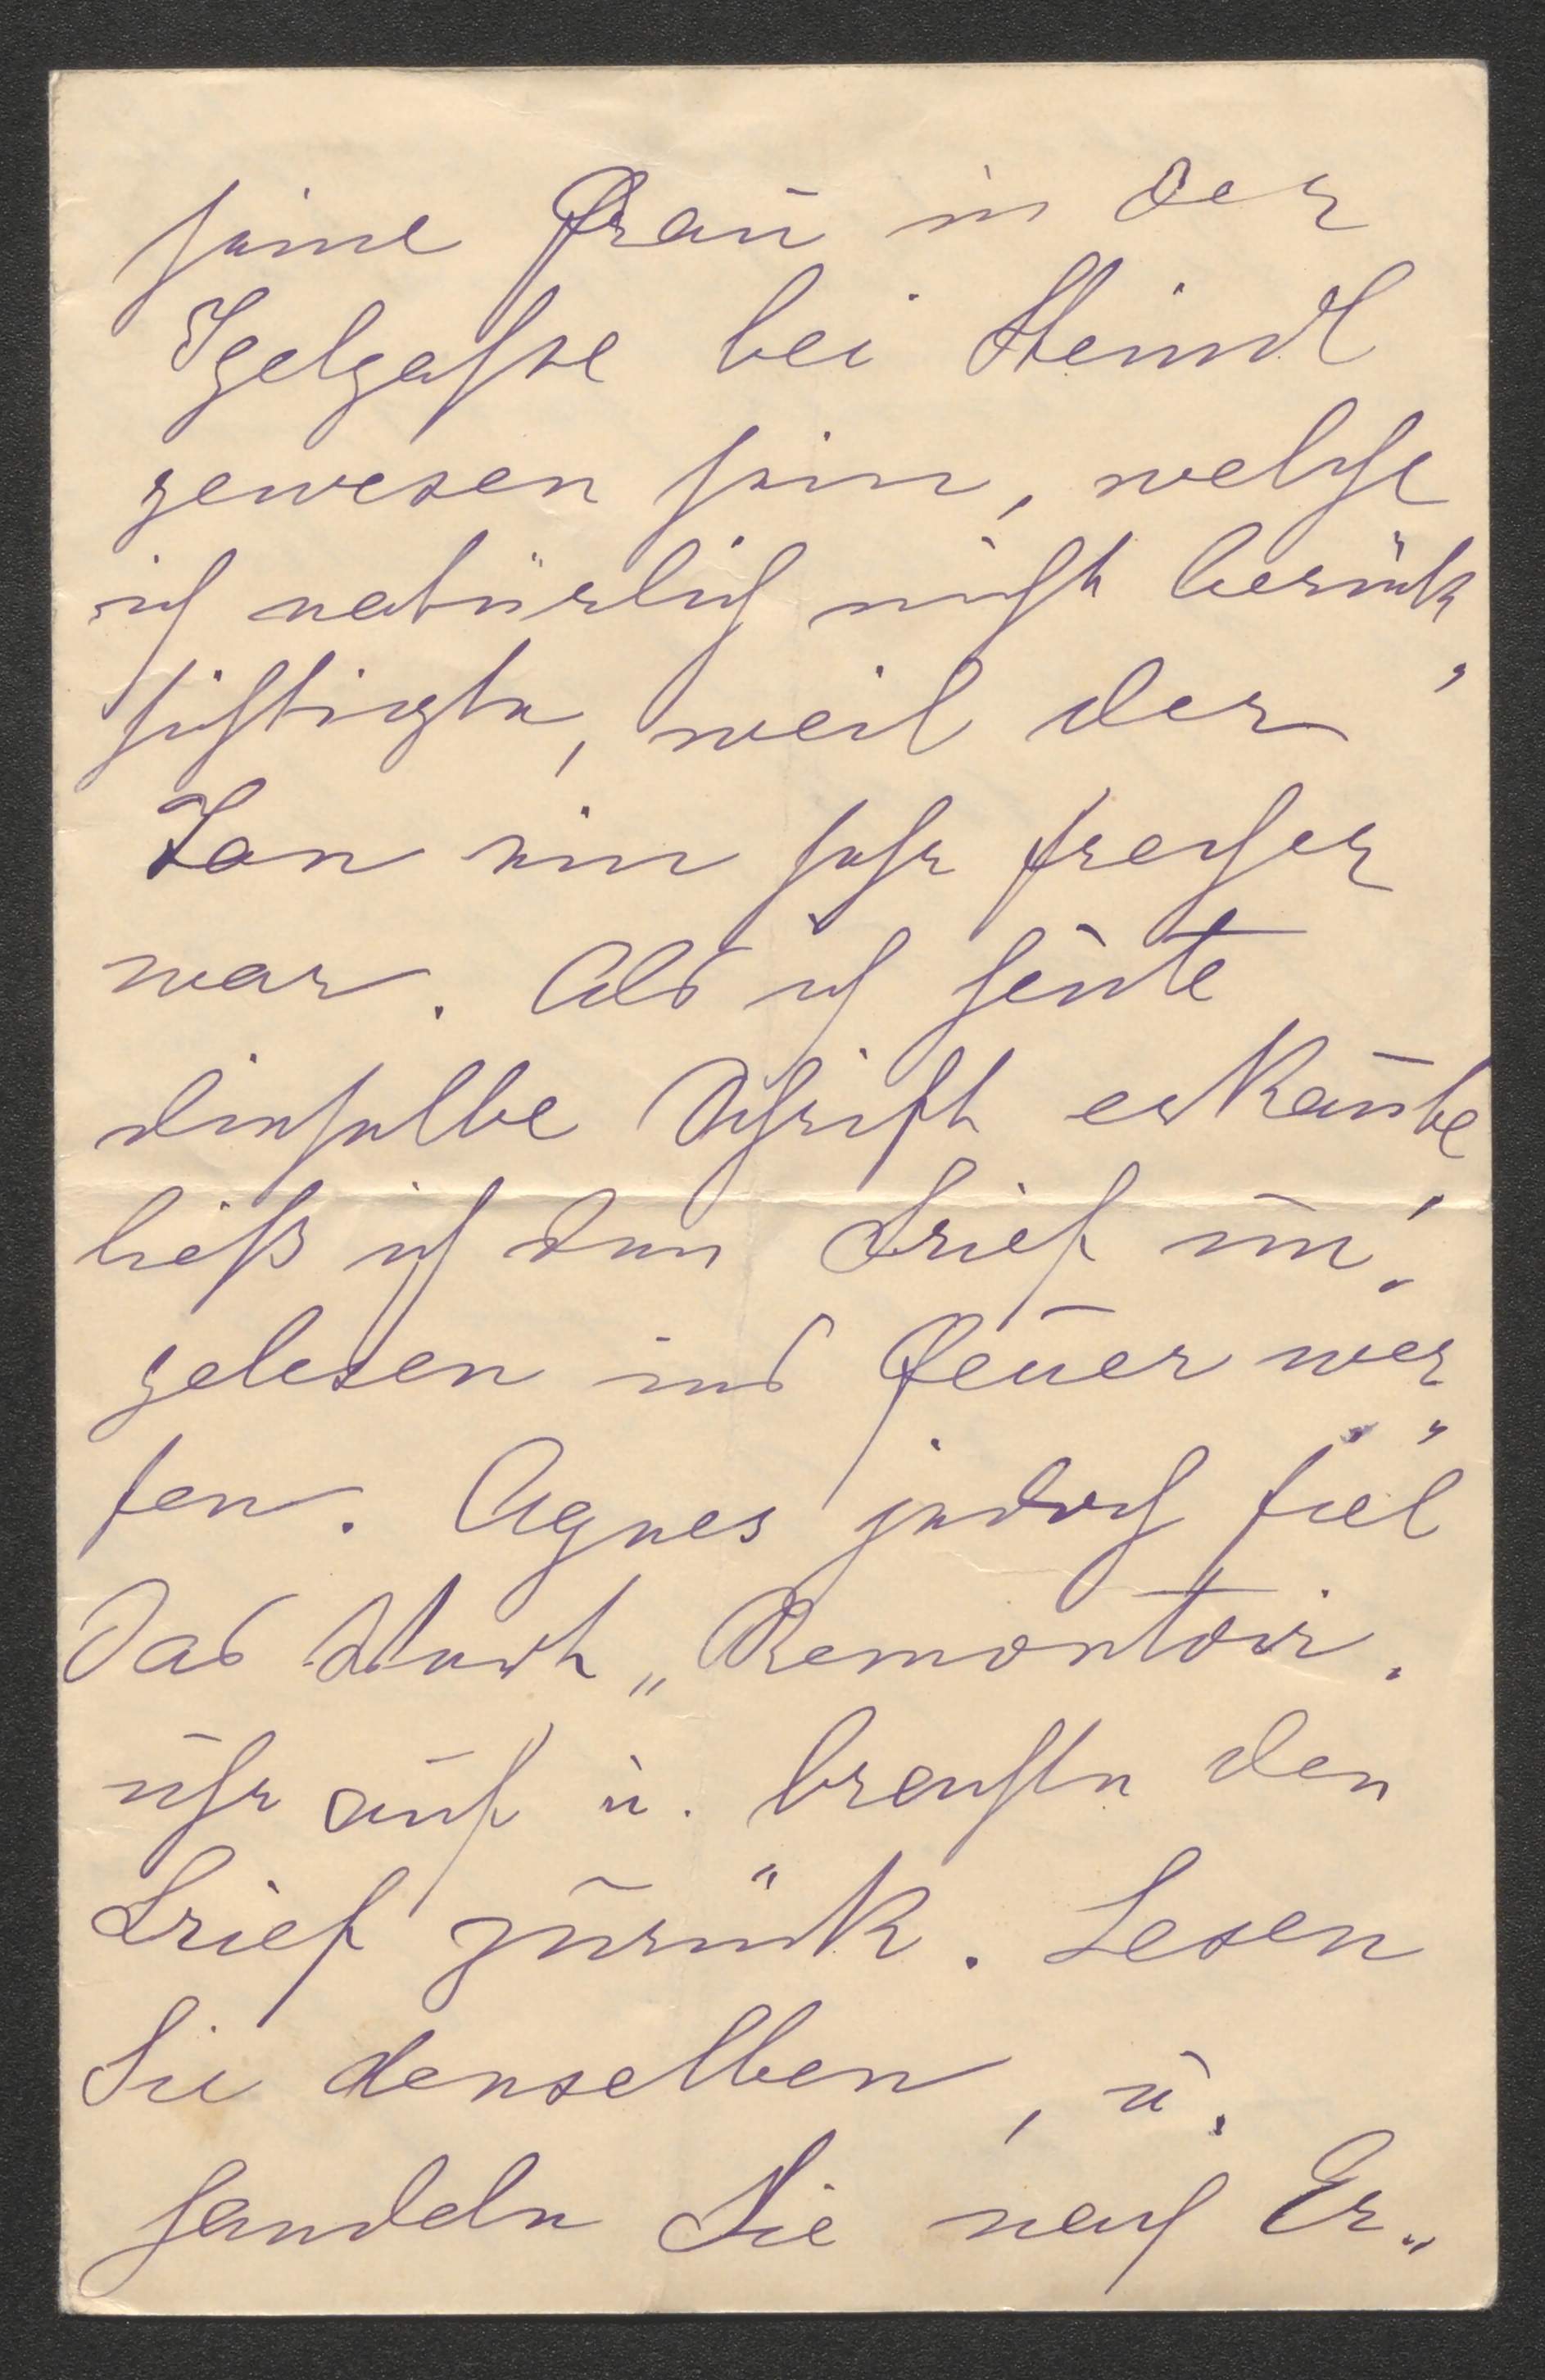 seine Frau in der
Igelgasse bei Steindl
gewesen sein, welche
ich natürlich nicht berück„
sichtigte, weil der
Ton ein sehr frecher
war. Als ich heute
dieselbe Schrift erkañte
ließ ich den Brief un„
gelesen ins Feuer wer„
fen. Agnes jedoch fiel
das Wort „Remontoir„
uhr auf u. brachte den
Brief zurück. Lesen
Sie denselben, u.
handeln Sie nach Er„